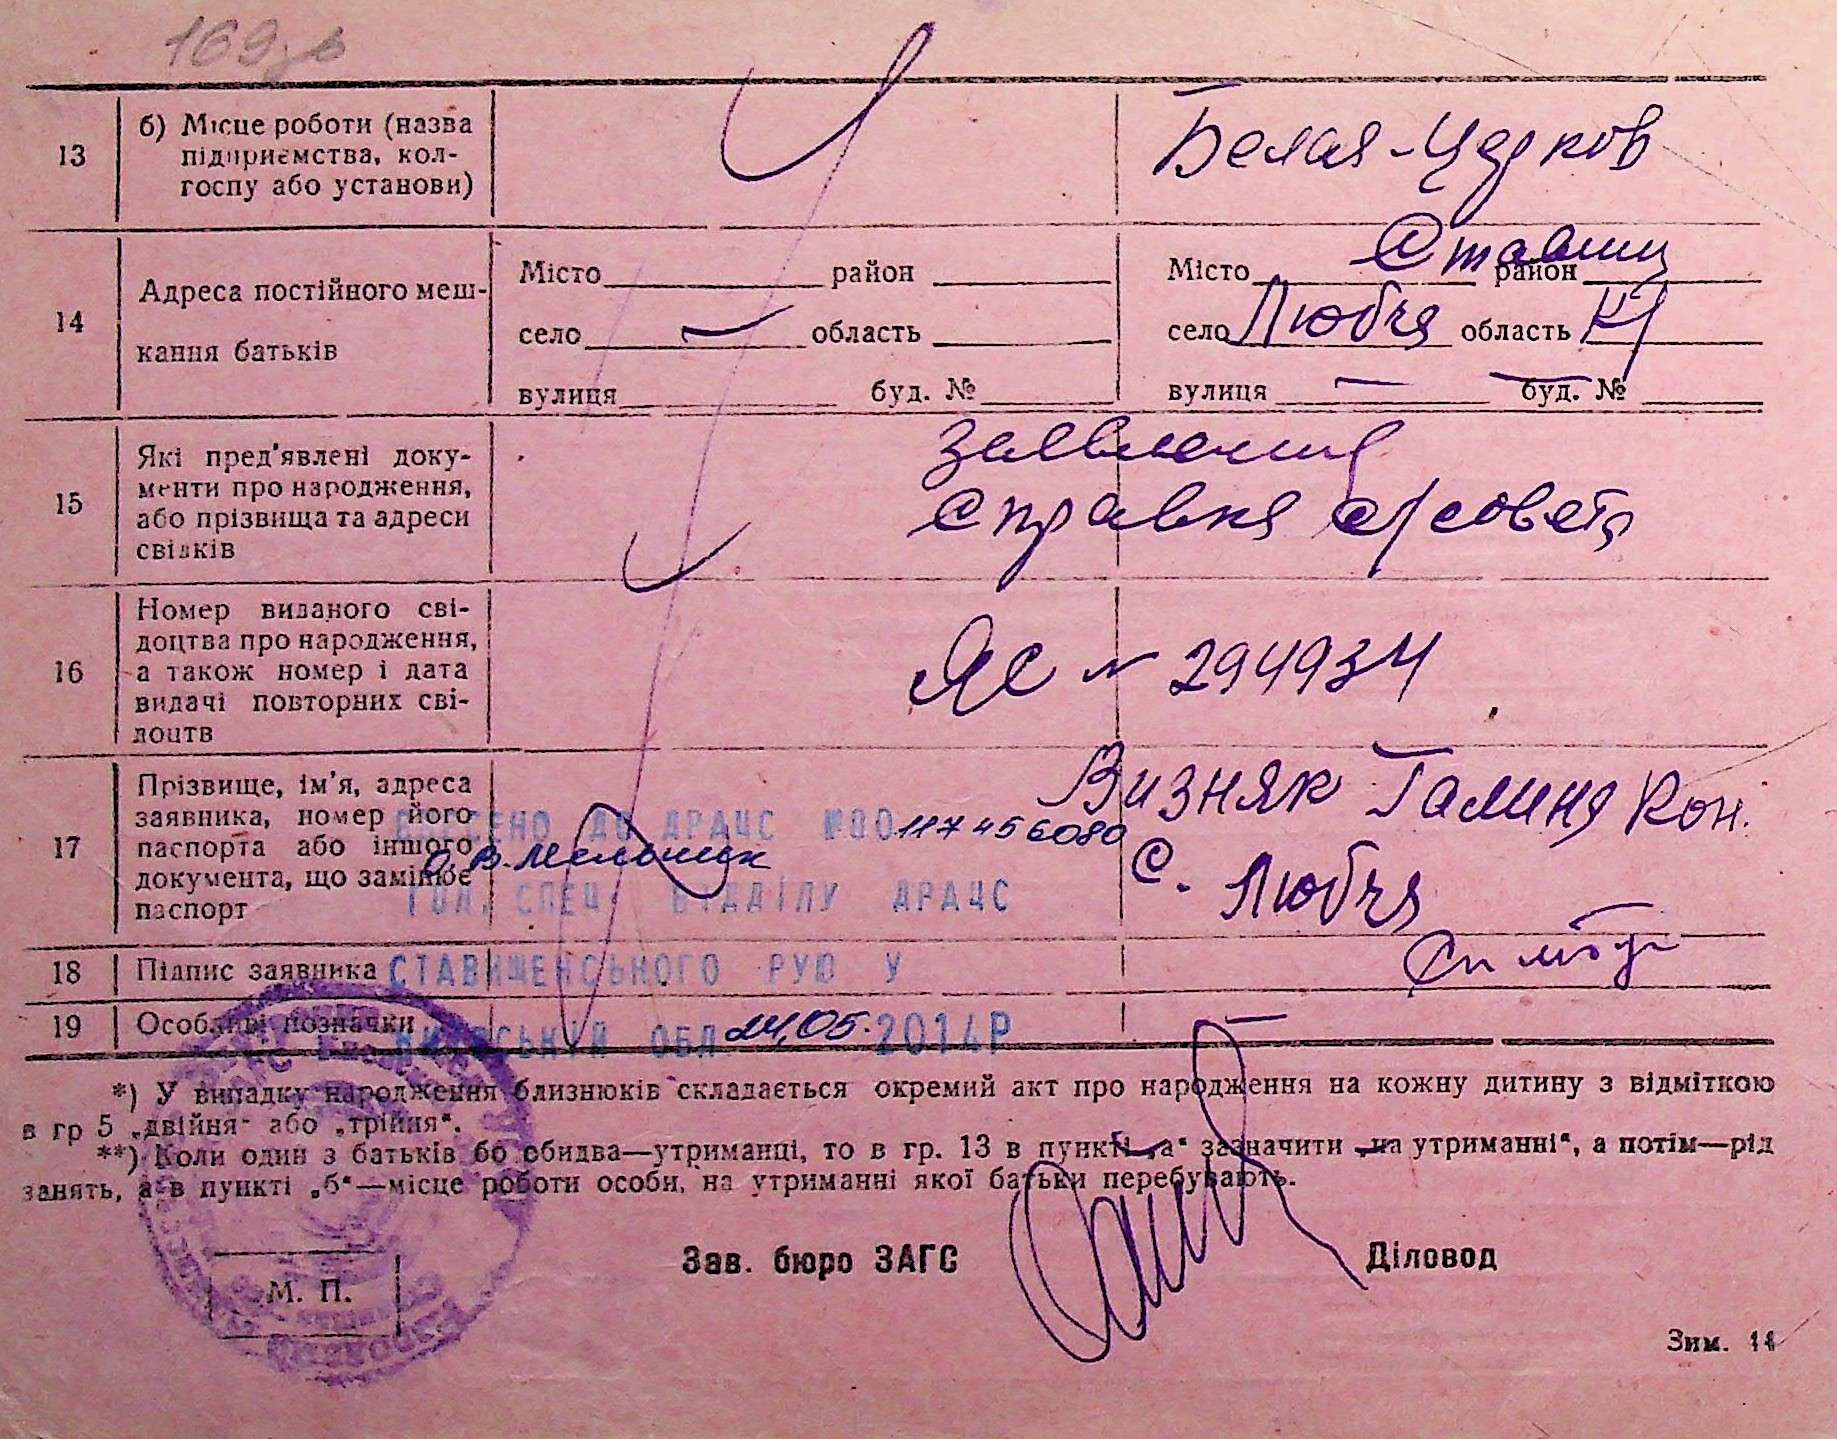 13
б) Місце роботи (назва
підприємства, кол-
госпу або установи)
Белая-Церков
14
Адреса постійного меш-
кання батьків
Місто район
село — область
вулиця буд. №
Місто Ставищ район
село Любча область
вулиця — буд. № —
15
Які пред'явлені доку-
менти про народження,
або прізвища та адреси
свідків
Заявления
Справка с/совета
16
Номер виданого сві-
доцтва про народження,
а також номер і дата
видачі повторних сві-
доцтв
ЯС № 294934
17
Прізвище, ім'я, адреса
заявника, номер його
паспорта або іншого
документа, що замінює
паспорт
Визняк Галина Кон.
с. Любча
ВНЕСЕНО ДО ДРАЦС №00117456080
О.В. Мельник
ГОЛ. СПЕЦ. ВІДДІЛУ ДРАЦС
18
Підпис заявника
СТАВИЩЕНСЬКОГО РУЮ У
19
Особливі позначки
—
КИЇВСЬКІЙ ОБЛ 24,05.2014Р
*) У випадку народження близнюків складається окремий акт про народження на кожну дитину з відміткою
в гр 5 „двійня" або „трійня".
**) Коли один з батьків бо обидва—утриманці, то в гр. 13 в пункті „а" зазначити „на утриманні", а потім—рід
занять, а в пункті „б"—місце роботи особи, на утриманні якої батьки перебувають.
Зав. бюро ЗАГС
Діловод
М. П.
Зим. 14